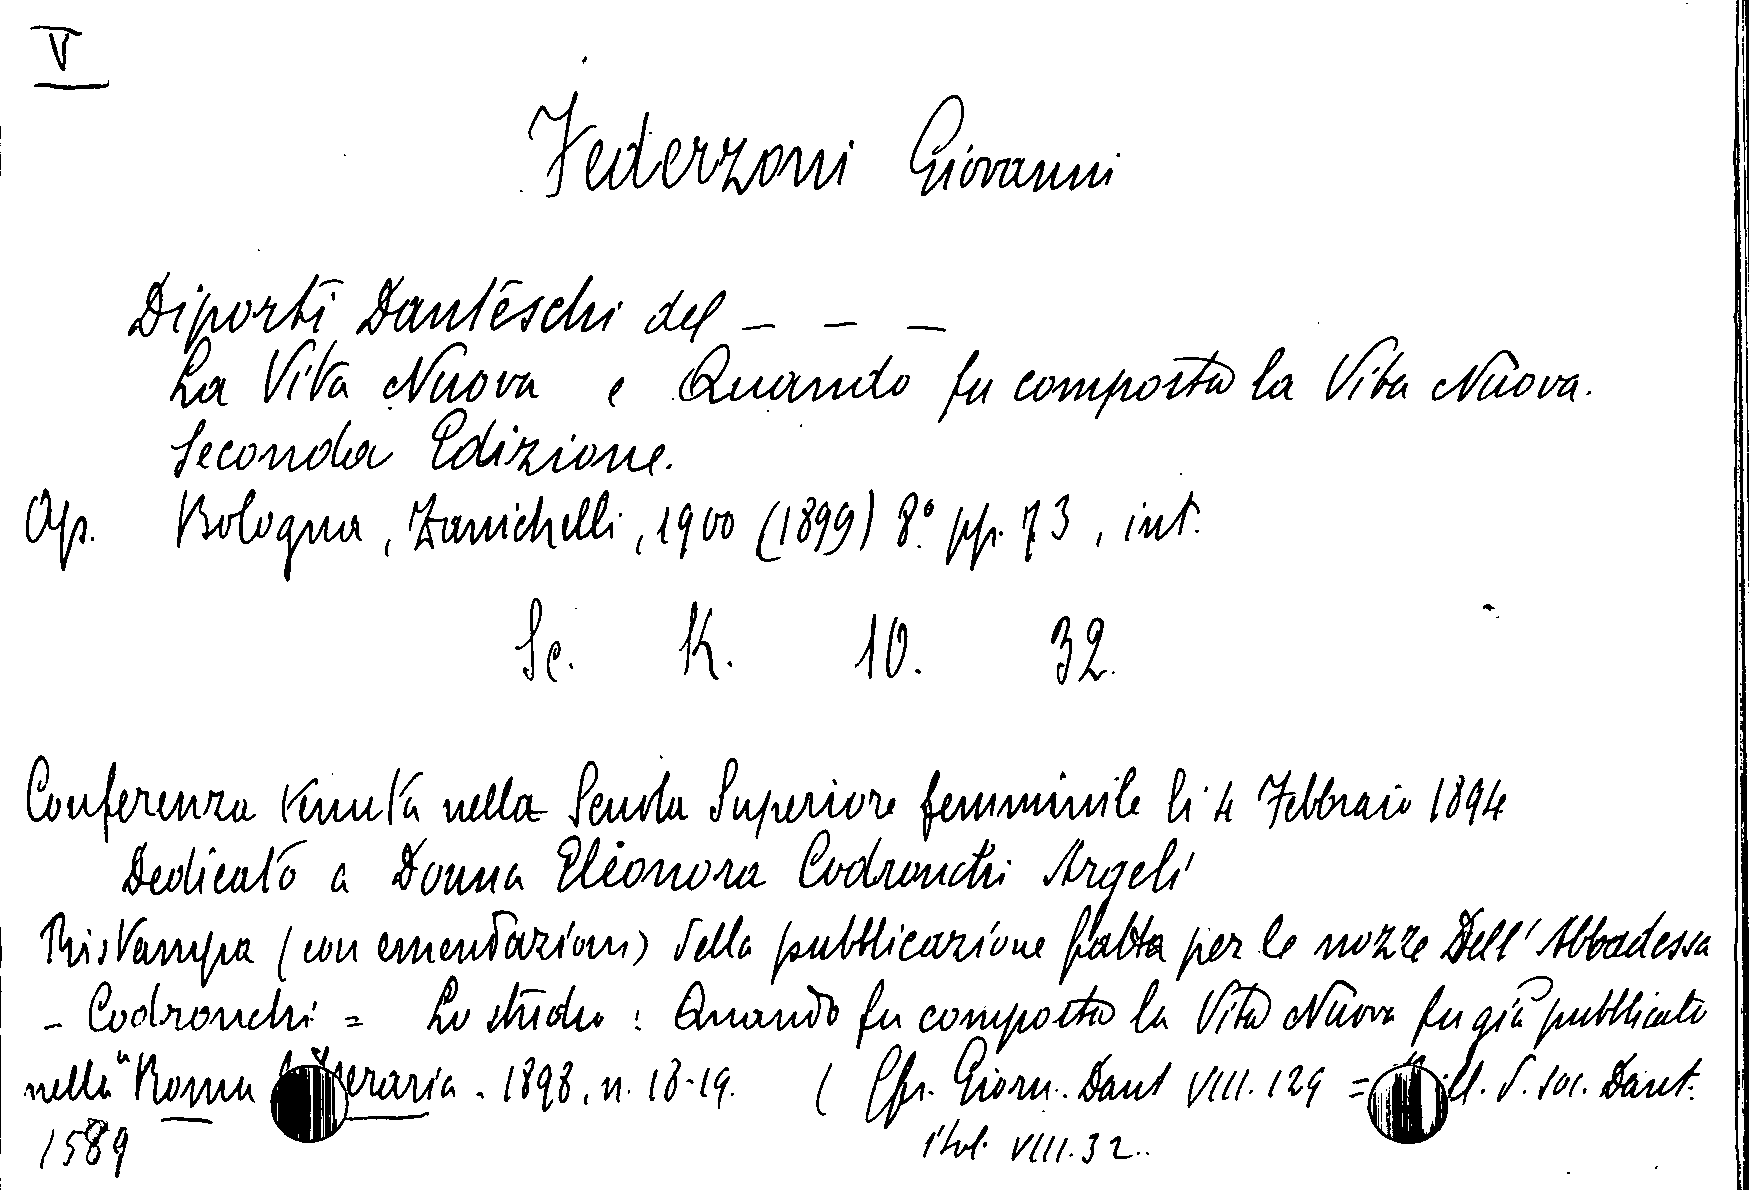 V
Federzoni Giovanni
Diporti Danteschi del — — —
La Vita Nuova e Quando fu composta la Vita Nuova.
Seconda Edizione.
Op. Bologna, Zanichelli, 1900 (1899) 8.° pp. 73, int.
Sc. K. 10. 32.
Conferenza tenuta nella Scuola Superiore femminile li 4 Febbraio 1894
Dedicato a Donna Eleonora Codronchi Argeli
Ristampa (con emendazioni) della pubblicazione fatta per le nozze Dell'Abbadessa
- Codronchi = Lo studio: Quando fu composta la Vita Nuova fu già pubblicato
nella "Roma letteraria. 1898, n. 18-19. (Cfr. Giorn. Dant VIII. 129 = Bull. d. soc. Dant.
ital. VIII. 32..
1589